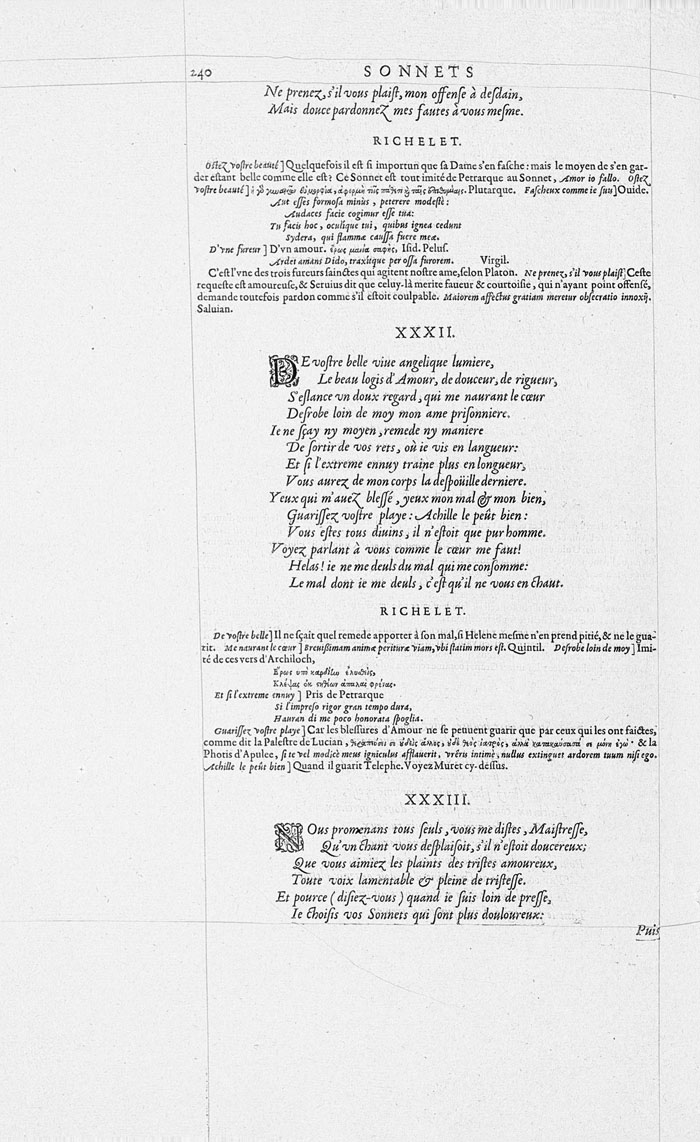 240 SONNETS
Ne prenez, s'il vous plaist, mon offense à desdain,
Mais douce pardonnez mes fautes à vous mesme.
RICHELET.
Ostez vostre beauté] Quelquefois il est si importun que sa Dame s'en fasche: mais le moyen de s'en gar-
der estant belle comme elle est? Ce Sonnet est tout imité de Petrarque au Sonnet, Amor io fallo. Ostez
vostre beauté] Plutarque. Fascheux comme ie suis] Ouide.
Aut esses formosa minùs, peterere modestè:
Audaces facie cogimur esse tua:
Tu facis hoc, oculique tui, quibus ignea cedunt
Sydera, qui flammæ caussa fuere meæ.
D'vne fureur] D'vn amour. ἔρως μανία σαφὴς, Isid. Pelus.
Ardet amans Dido, traxitque per ossa furorem. Virgil.
C'est l'vne des trois fureurs sainctes qui agitent nostre ame, selon Platon. Ne prenez, s'il vous plaist] Ceste
requeste est amoureuse, & Seruius dit que celuy-là merite faueur & courtoisie, qui n'ayant point offensé,
demande toutefois pardon comme s'il estoit coulpable. Maiorem affectus gratiam meretur obsecratio innoxij.
Saluian.
XXXII.
DE vostre belle viue angelique lumiere,
Le beau logis d'Amour, de douceur, de rigueur,
S'eslance vn doux regard, qui me naurant le cœur
Desrobe loin de moy mon ame prisonniere.
Ie ne sçay ny moyen, remede ny maniere
De sortir de vos rets, où ie vis en langueur:
Et si l'extreme ennuy traine plus en longueur,
Vous aurez de mon corps la despoüille derniere.
Yeux qui m'auez blessé, yeux mon mal & mon bien,
Guarissez vostre playe: Achille le peût bien:
Vous estes tous diuins, il n'estoit que pur homme.
Voyez parlant à vous comme le cœur me faut!
Helas! ie ne me deuls du mal qui me consomme:
Le mal dont ie me deuls, c'est qu'il ne vous en chaut.
RICHELET.
De vostre belle] Il ne sçait quel remede apporter à son mal, si Helene mesme n'en prend pitié, & ne le gua-
rit. Me naurant le cœur] Breuissimam animæ perituræ viam, vbi statim mors est. Quintil. Desrobe loin de moy] Imi-
té de ces vers d'Archiloch,
Et si l'extreme ennuy] Pris de Petrarque
Si l'impreso rigor gran tempo dura,
Hauran di me poco honorata spoglia.
Guarissez vostre playe] Car les blessures d'Amour ne se peuuent guarir que par ceux qui les ont faictes,
comme dit la Palestre de Lucian, & la
Photis d'Apulee, si te vel modicè meus igniculus afflauerit, vréris intimè, nullus extinguet ardorem tuum nisi ego.
Achille le peût bien] Quand il guarit Telephe. Voyez Muret cy-dessus.
XXXIII.
NOus promenans tous seuls, vous me distes, Maistresse,
Qu'vn chant vous desplaisoit, s'il n'estoit doucereux;
Que vous aimiez les plaints des tristes amoureux,
Toute voix lamentable & pleine de tristesse.
Et pource (disiez-vous) quand ie suis loin de presse,
Ie choisis vos Sonnets qui sont plus douloureux:
Puis